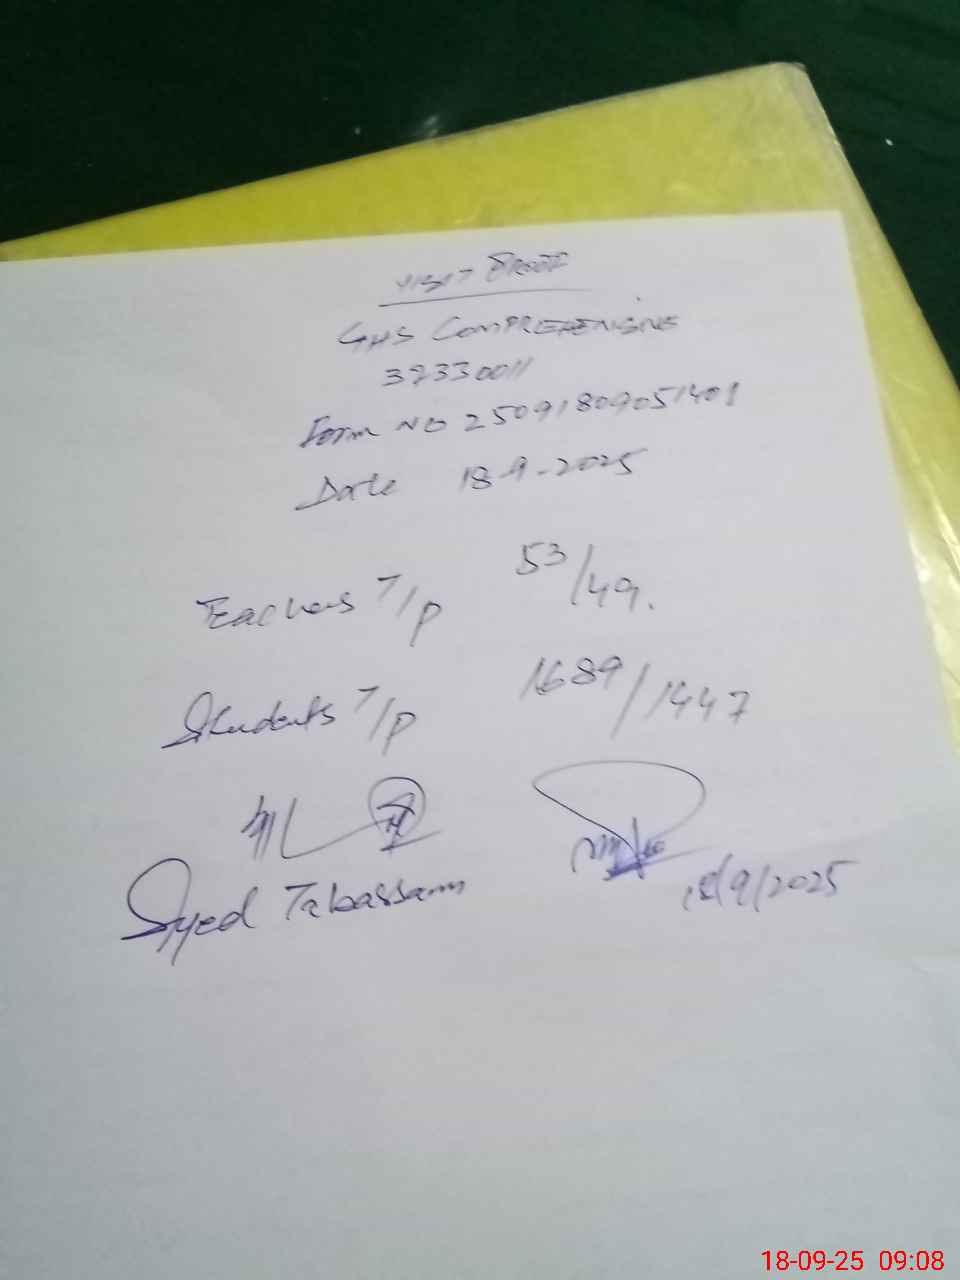 VISIT PROOF
GHS COMPREHENSINE
37330011
Form NO 25091809051401
Date 18-9-2025
Teachers T/P 53/49.
Students T/P 1689/1447
Syed Tabassam
18/9/2025
18-09-25 09:08